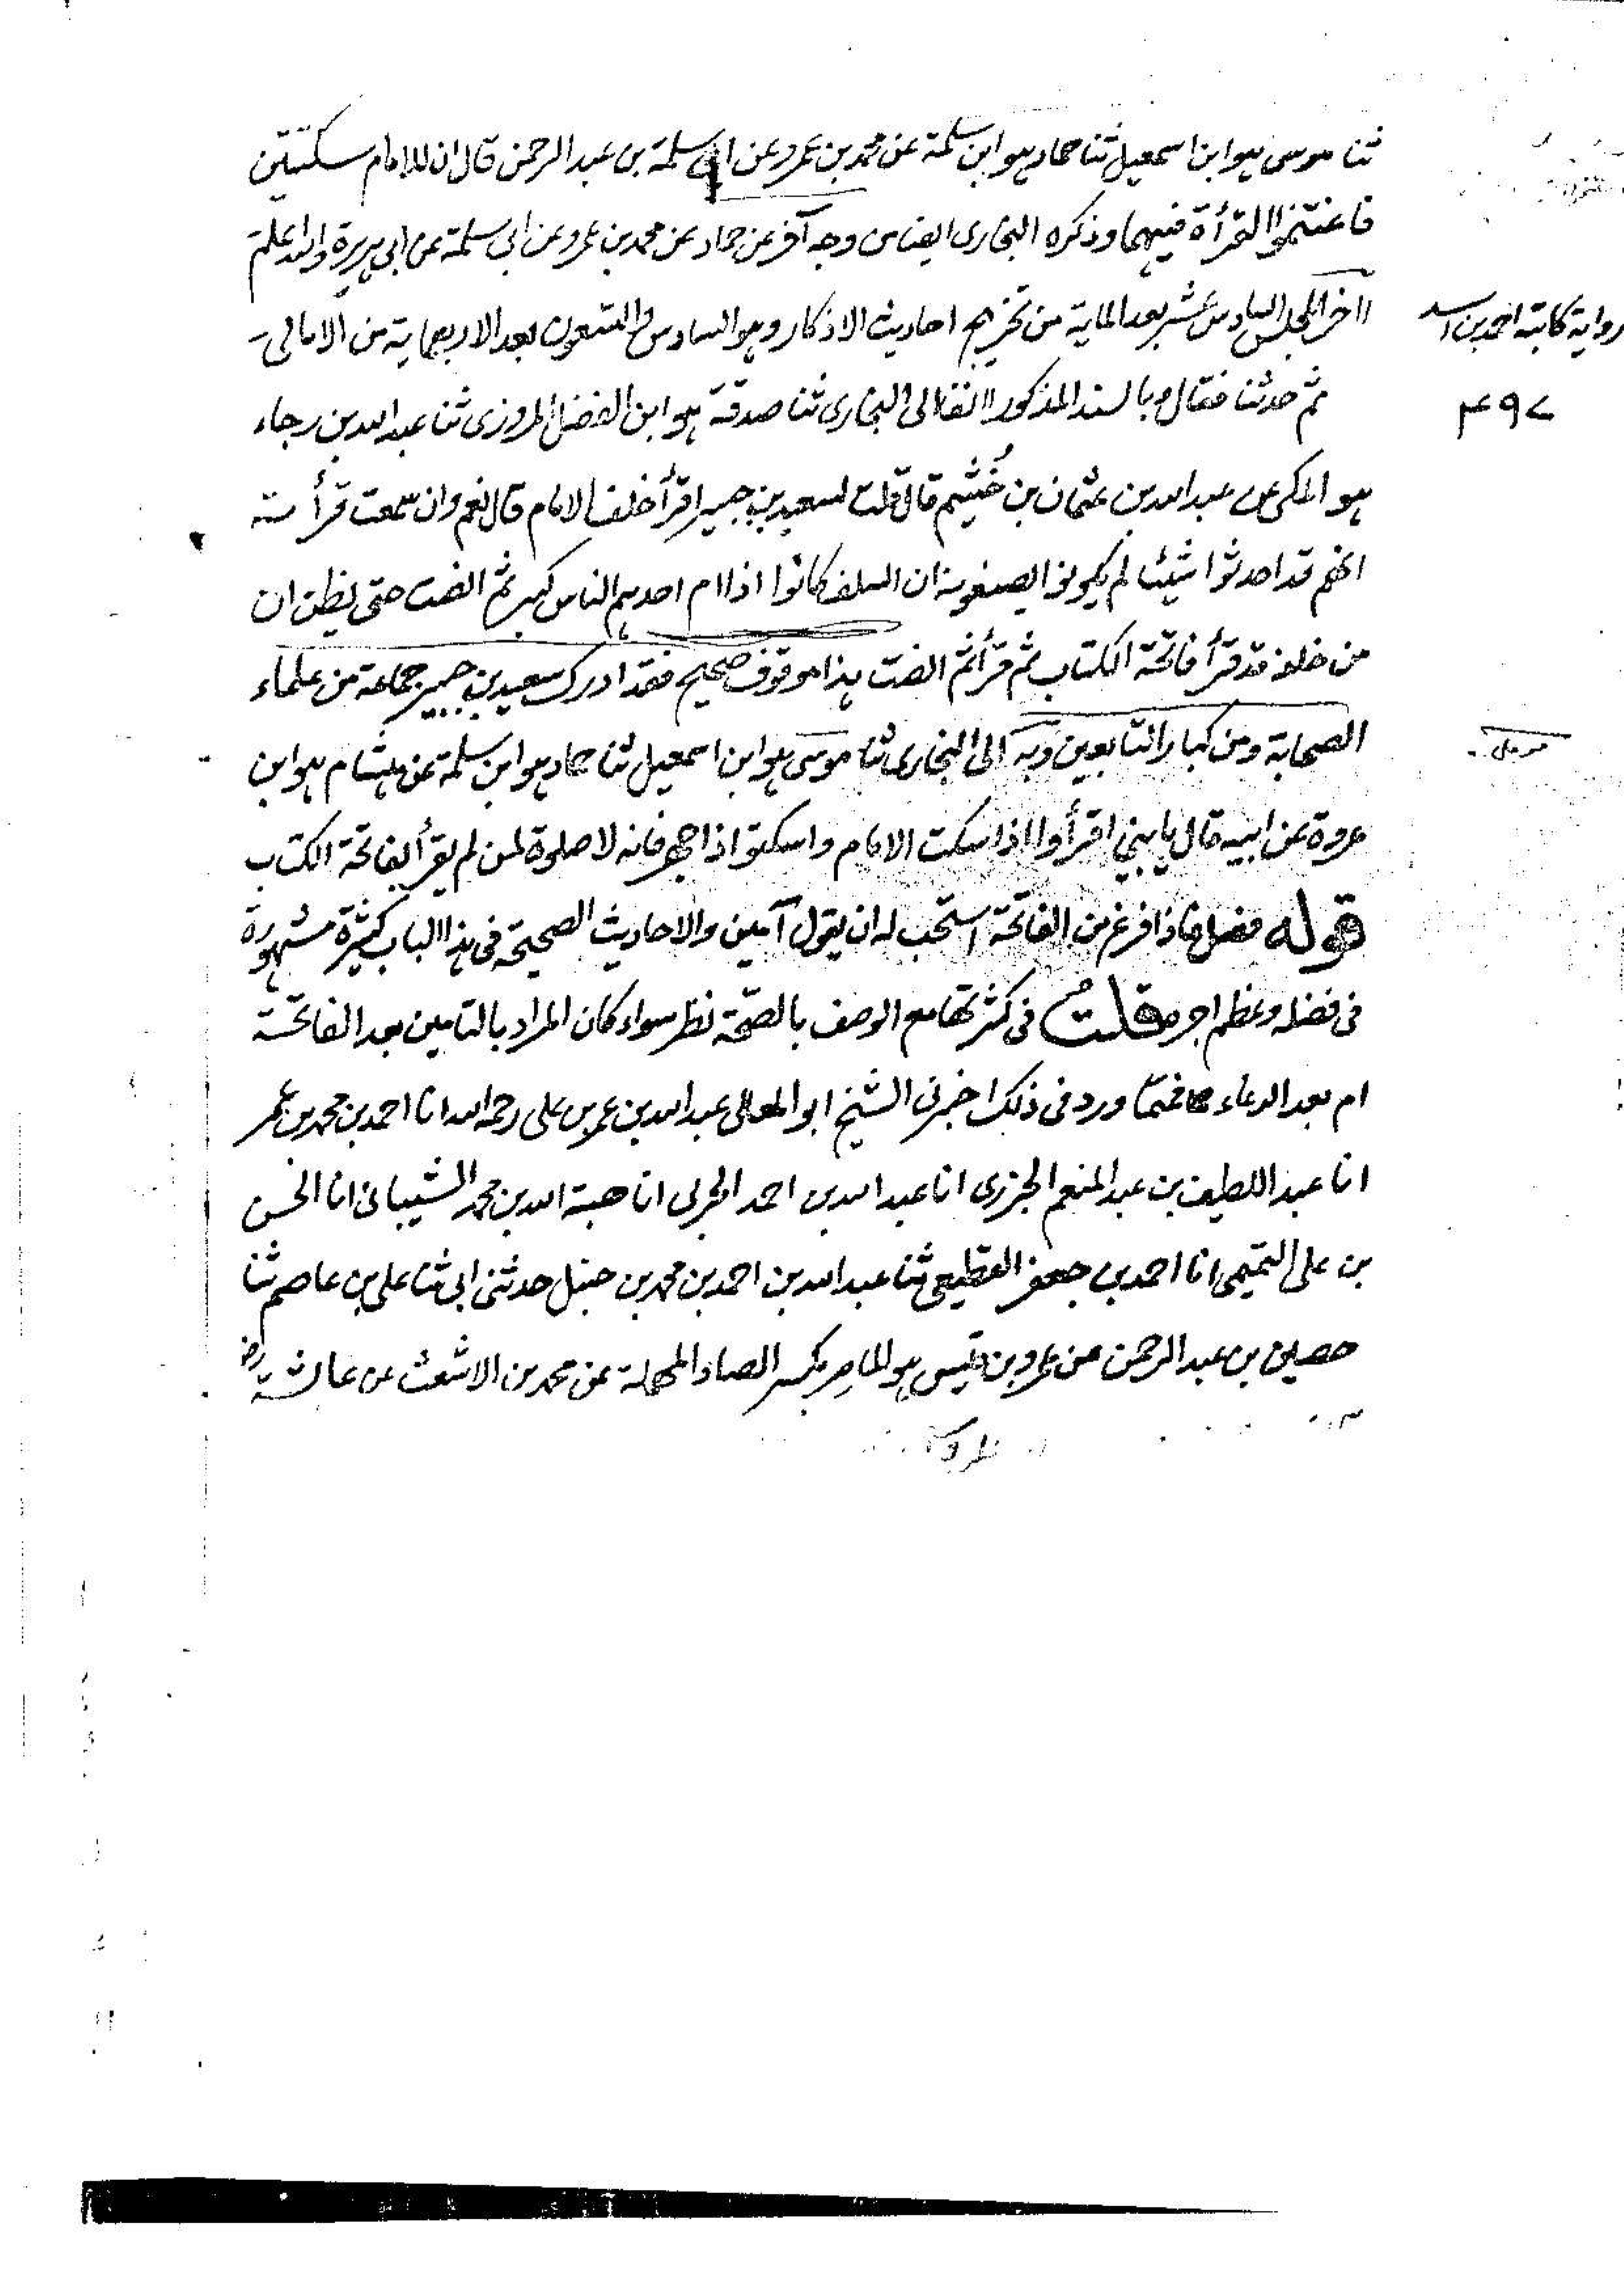 ثنا موسى هو ابن اسمعيل ثنا حماد هو ابن سلمة عن محمد بن عمرو عن ابى سلمة بن عبد الرحمن قال ان للامام سكتتين
فاغتنموا القرأة فيهما وذكره البخارى ايضا من وجه آخر عن حماد عن محمد بن عمرو عن ابى سلمة عن ابى هريرة والله اعلم
آخر المجلس السادس عشر بعد الماية من تخريج احاديث الاذكار وهو السادس والتسعون بعد الاربعماية من الامالى
رواية كاتبه احمد بن اسد
ثم حدثنا فقال وبالسند المذكور انفا الى البخارى ثنا صدقة هو ابن الفضل المروزى ثنا عبد الله بن رجاء
۴۹۷
هو المكى عن عبد الله بن عثمان بن خُثيم قال قلت لسعيد بن جبير اقرأ خلف الامام قال نعم وان سمعت قرأته
انهم قد احدثوا شيئا لم يكونوا يصنعونه ان السلف كانوا اذا ام احدهم الناس كبر ثم انصت حتى يظن ان
من خلفه قد قرأ فاتحة الكتاب ثم قرأ ثم انصت هذا موقوف صحيح فقد ادرك سعيد بن جبير جماعة من علماء
الصحابة ومن كبار التابعين وبه الى البخارى ثنا موسى هو ابن اسمعيل ثنا حماد هو ابن سلمة عن هشام هو ابن
عروة عن ابيه قال يا بنى اقرأوا اذا سكت الامام واسكتوا اذا جهر فانه لا صلوة لمن لم يقرأ بفاتحة الكتاب
قوله فصل فاذا فرغ من الفاتحة استحب له ان يقول آمين والاحاديث الصحيحة فى هذا الباب كثيرة مشهورة
فى فضله وعظم اجره قلت فى كثرتها مع الوصف بالصحة نظر سواء كان المراد بالتامين بعد الفاتحة
ام بعد الدعاء فمما ورد فى ذلك اخبرنى الشيخ ابو المعالى عبد الله بن عمر بن على رحمه الله انا احمد بن محمد بن عمر
انا عبد اللطيف بن عبد المنعم الجزرى انا عبد الله بن احمد الحربى انا هبة الله بن محمد الشيبانى انا الحسن
بن على التميمى انا احمد بن جعفر القطيعى ثنا عبد الله بن احمد بن محمد بن حنبل حدثنى ابى ثنا على بن عاصم ثنا
حصين بن عبد الرحمن عن عمرو بن قيس هو الماصر بكسر الصاد المهملة عن محمد بن الاشعث عن عائشة رض